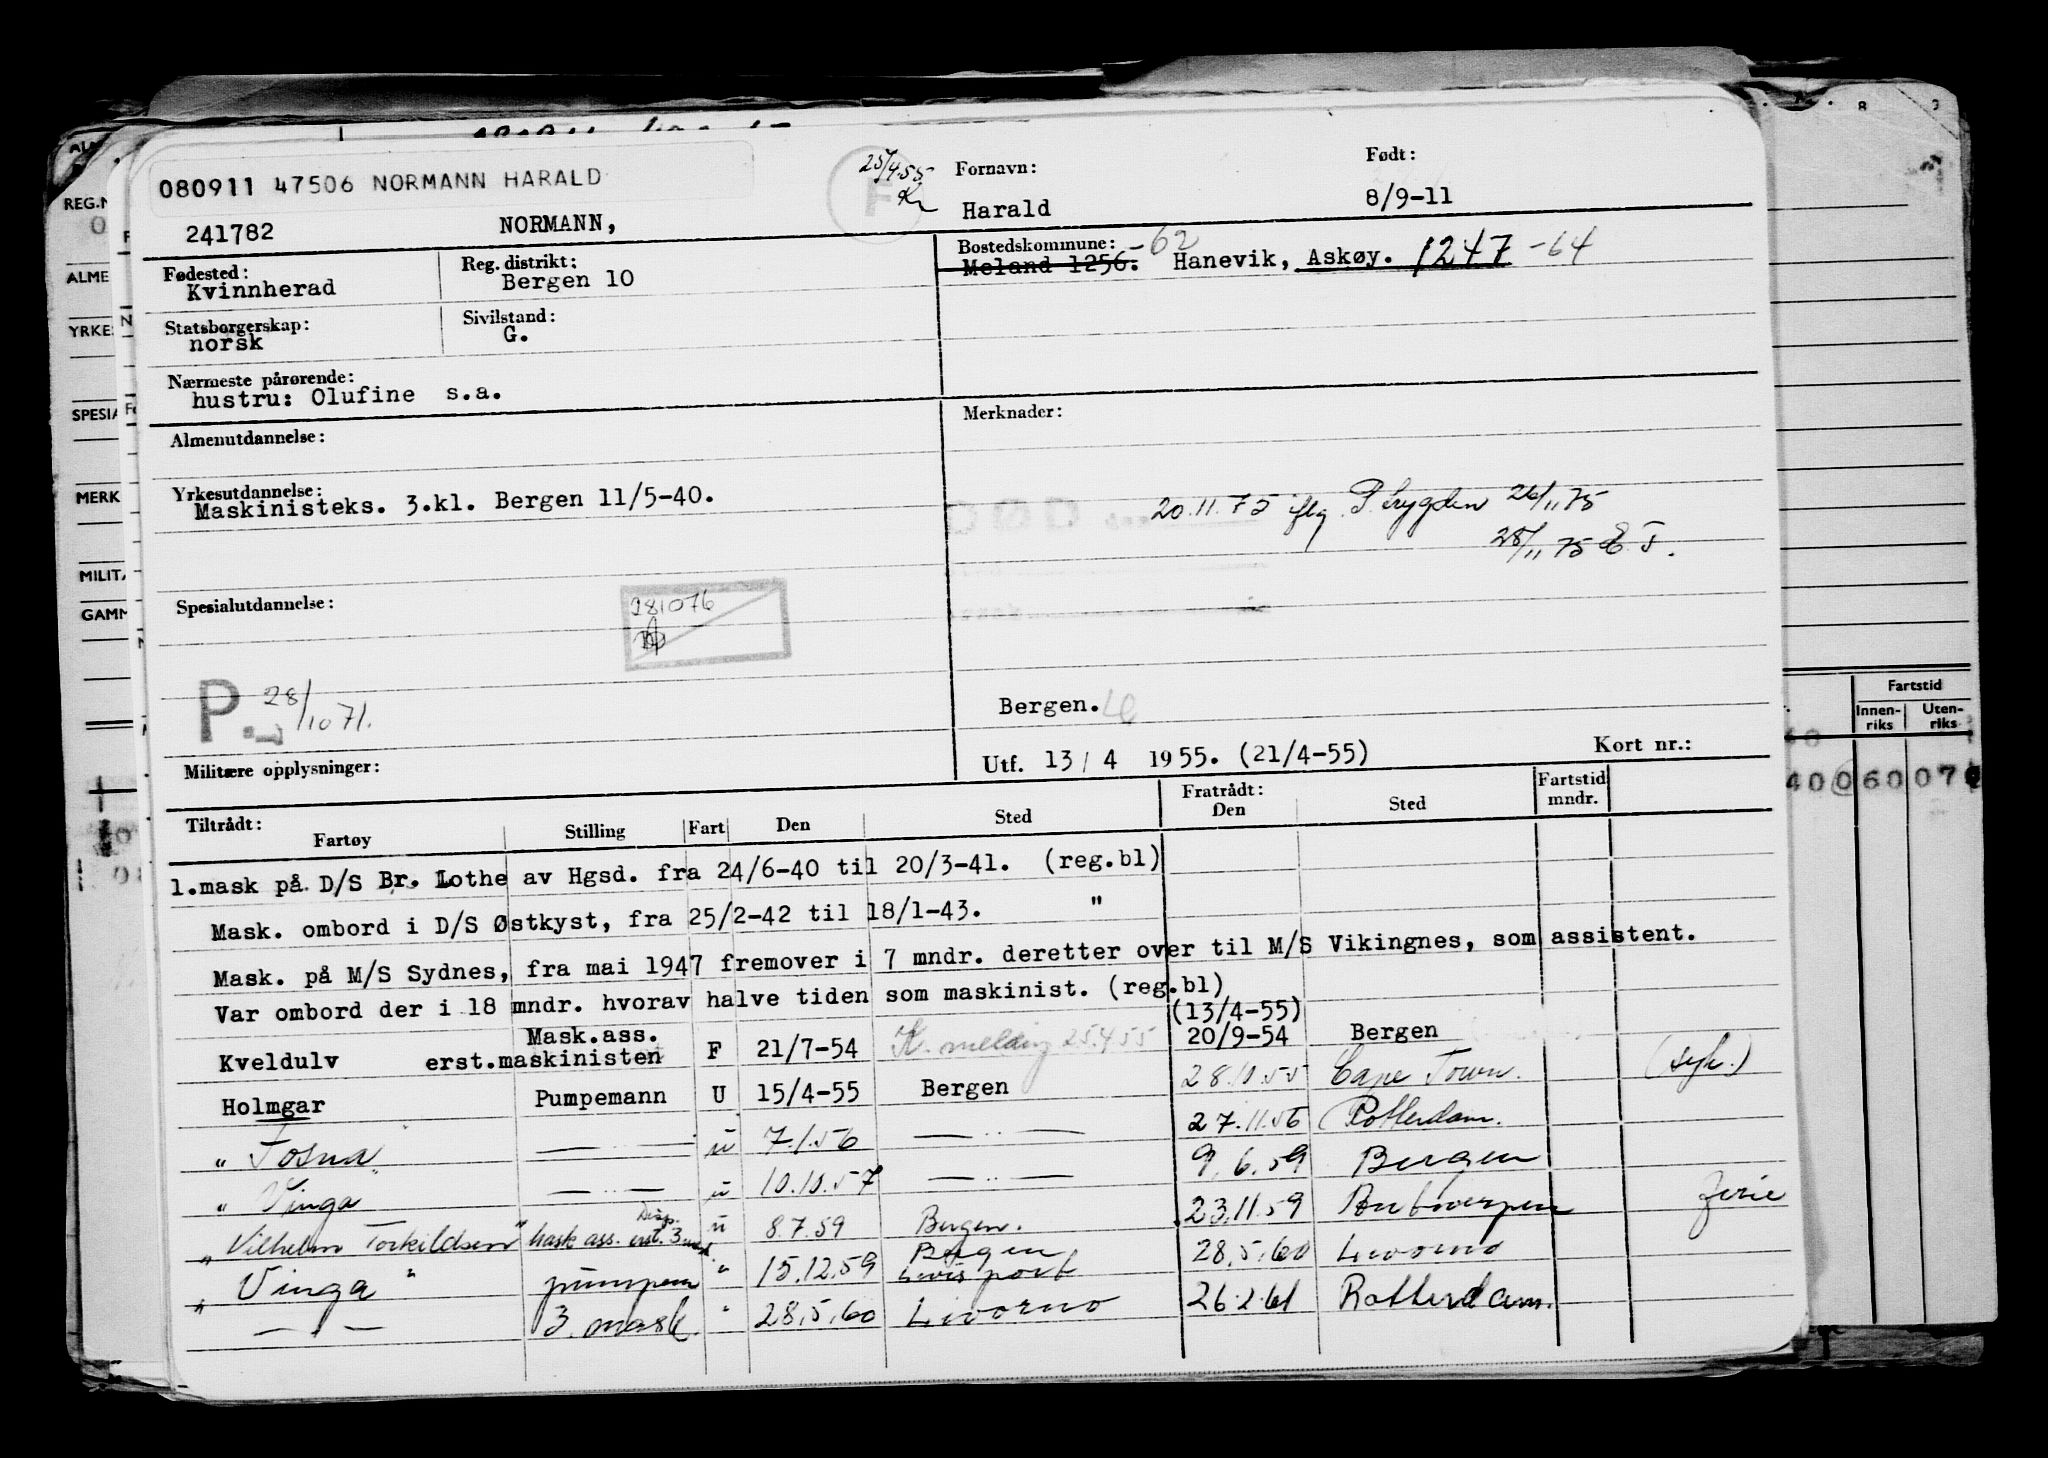 080911 47506 NORMANN HARALD
25/4.55
Fornavn:
Født:
241782
NORMANN,
Harald
8/9-11
Fødested:
Kvinnherad
Reg. distrikt:
Bergen 10
Bostedskommune: -62
Meland 1256. Hanevik, Askøy. 1247 -64
Statsborgerskap:
norsk
Sivilstand:
G.
Nærmeste pårørende:
hustru: Olufine s.a.
Almenutdannelse:
Merknader:
Yrkesutdannelse:
Maskinisteks. 3.kl. Bergen 11/5-40.
20.11.75 iflg. 26/11 75
28/11 75 E.T.
Spesialutdannelse:
281076
P. 28/10 71.
Bergen.
Militære opplysninger:
Utf. 13/4 1955. (21/4-55)
Kort nr.:
Tiltrådt:
Fratrådt:
Fartstid mndr.
Fartøy Stilling Fart Den Sted Den Sted
1.mask på D/S Br. Lothe av Hgsd. fra 24/6-40 til 20/3-41. (reg.bl)
Mask. ombord i D/S Østkyst, fra 25/2-42 til 18/1-43. "
Mask. på M/S Sydnes, fra mai 1947 fremover i 7 mndr. deretter over til M/S Vikingnes, som assistent.
Var ombord der i 18 mndr. hvorav halve tiden som maskinist. (reg.bl)
Mask.ass. (13/4-55)
Kveldulv erst.maskinisten F 21/7-54 K. melding 25.4.55 20/9-54 Bergen
Holmgar Pumpemann U 15/4-55 Bergen 28.10.55 Cape Town. (syk.)
" Fosna " — .. — u 7.1.56 — .. — 27.11.56 Rotterdam.
" Vinga — .. — u 10.10.57 — .. — 9.6.59 Bergen
Disp.
" Vilhelm Torkildsen " mask ass. erst. 3 mask u 8.7.59 Bergen. 23.11.59 Antwerpen ferie
" Vinga " pumpem " 15.12.59 Bergen 28.5.60 Livorno
— .. — 3. mask. " 28.5.60 Livorno 26.2.61 Rotterdam.
REG.N
ALME
YRKES
SPESIA
MERK
MILITÆ
GAMM
Fartstid
Innenriks
Utenriks